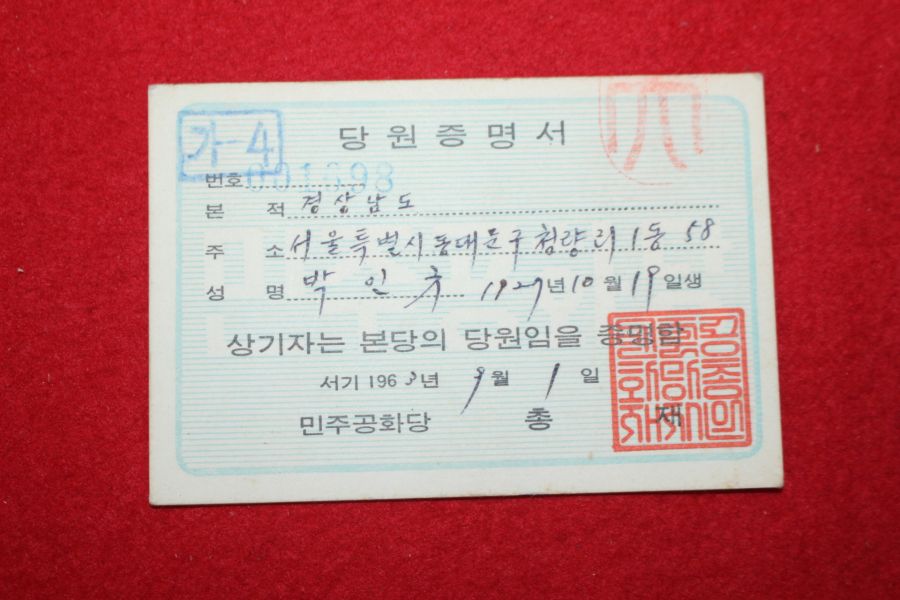 가-4
당원증명서
번호 001698
본 적 경상남도
주 소 서울특별시동대문구청량리1동 58
성 명 박인규 1927년 10월 19일생
상기자는 본당의 당원임을 증명함
서기 1963년 9월 1일
민주공화당 총 재